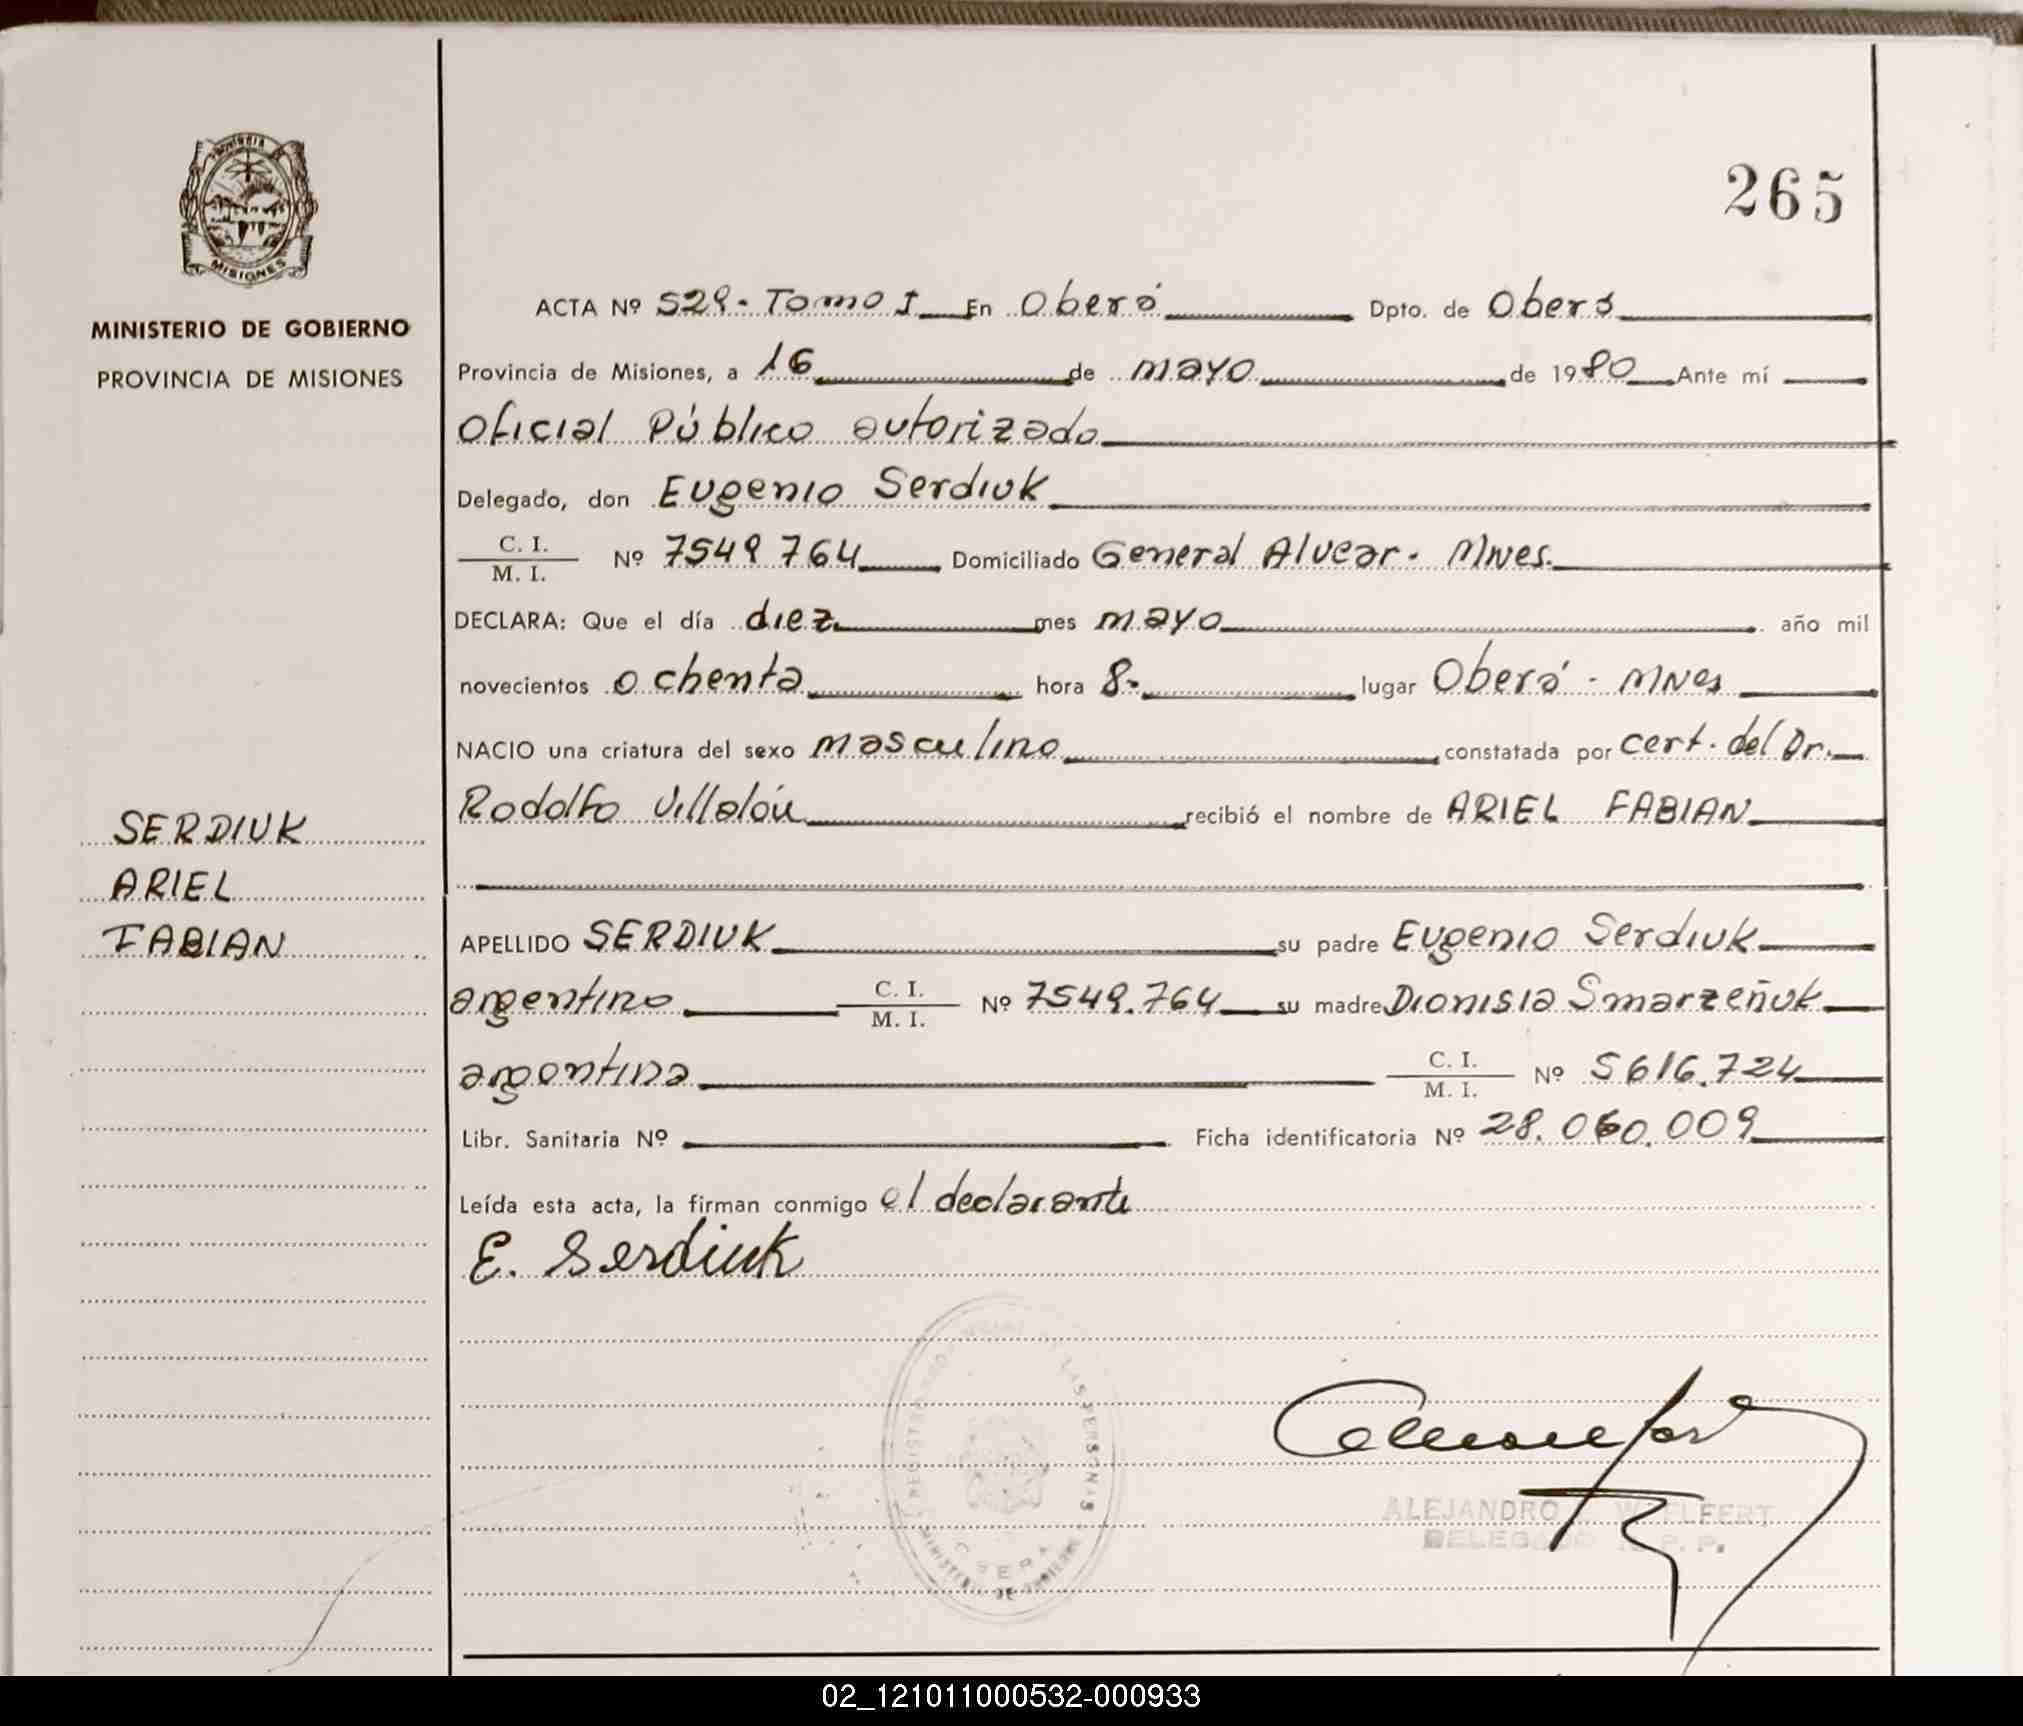 265
PROVINCIA
MISIONES
MINISTERIO DE GOBIERNO
PROVINCIA DE MISIONES
ACTA Nº 529 - Tomo I En Oberá Dpto. de Oberá
Provincia de Misiones, a 16 de mayo de 1980 Ante mí
Oficial Público autorizado
Delegado, don Eugenio Serdiuk
C. I.
M. I. Nº 7549 764 Domiciliado General Alvear - Mnes.
DECLARA: Que el día diez mes mayo año mil
novecientos ochenta hora 8- lugar Oberá - Mnes
NACIO una criatura del sexo masculino constatada por cert. del Dr.
Rodolfo Villalón recibió el nombre de ARIEL FABIAN
SERDIUK
ARIEL
FABIAN
APELLIDO SERDIUK su padre Eugenio Serdiuk
argentino C. I.
M. I. Nº 7549.764 su madre Dionisia Smarzeñuk
argentina C. I.
M. I. Nº 5616.724
Libr. Sanitaria Nº Ficha identificatoria Nº 28.060.009
Leída esta acta, la firman conmigo el declarante
E. Serdiuk
LAS PERSONAS
MINISTERIO DE GOBIERNO
ALEJANDRO
DELEGADO
02_121011000532-000933